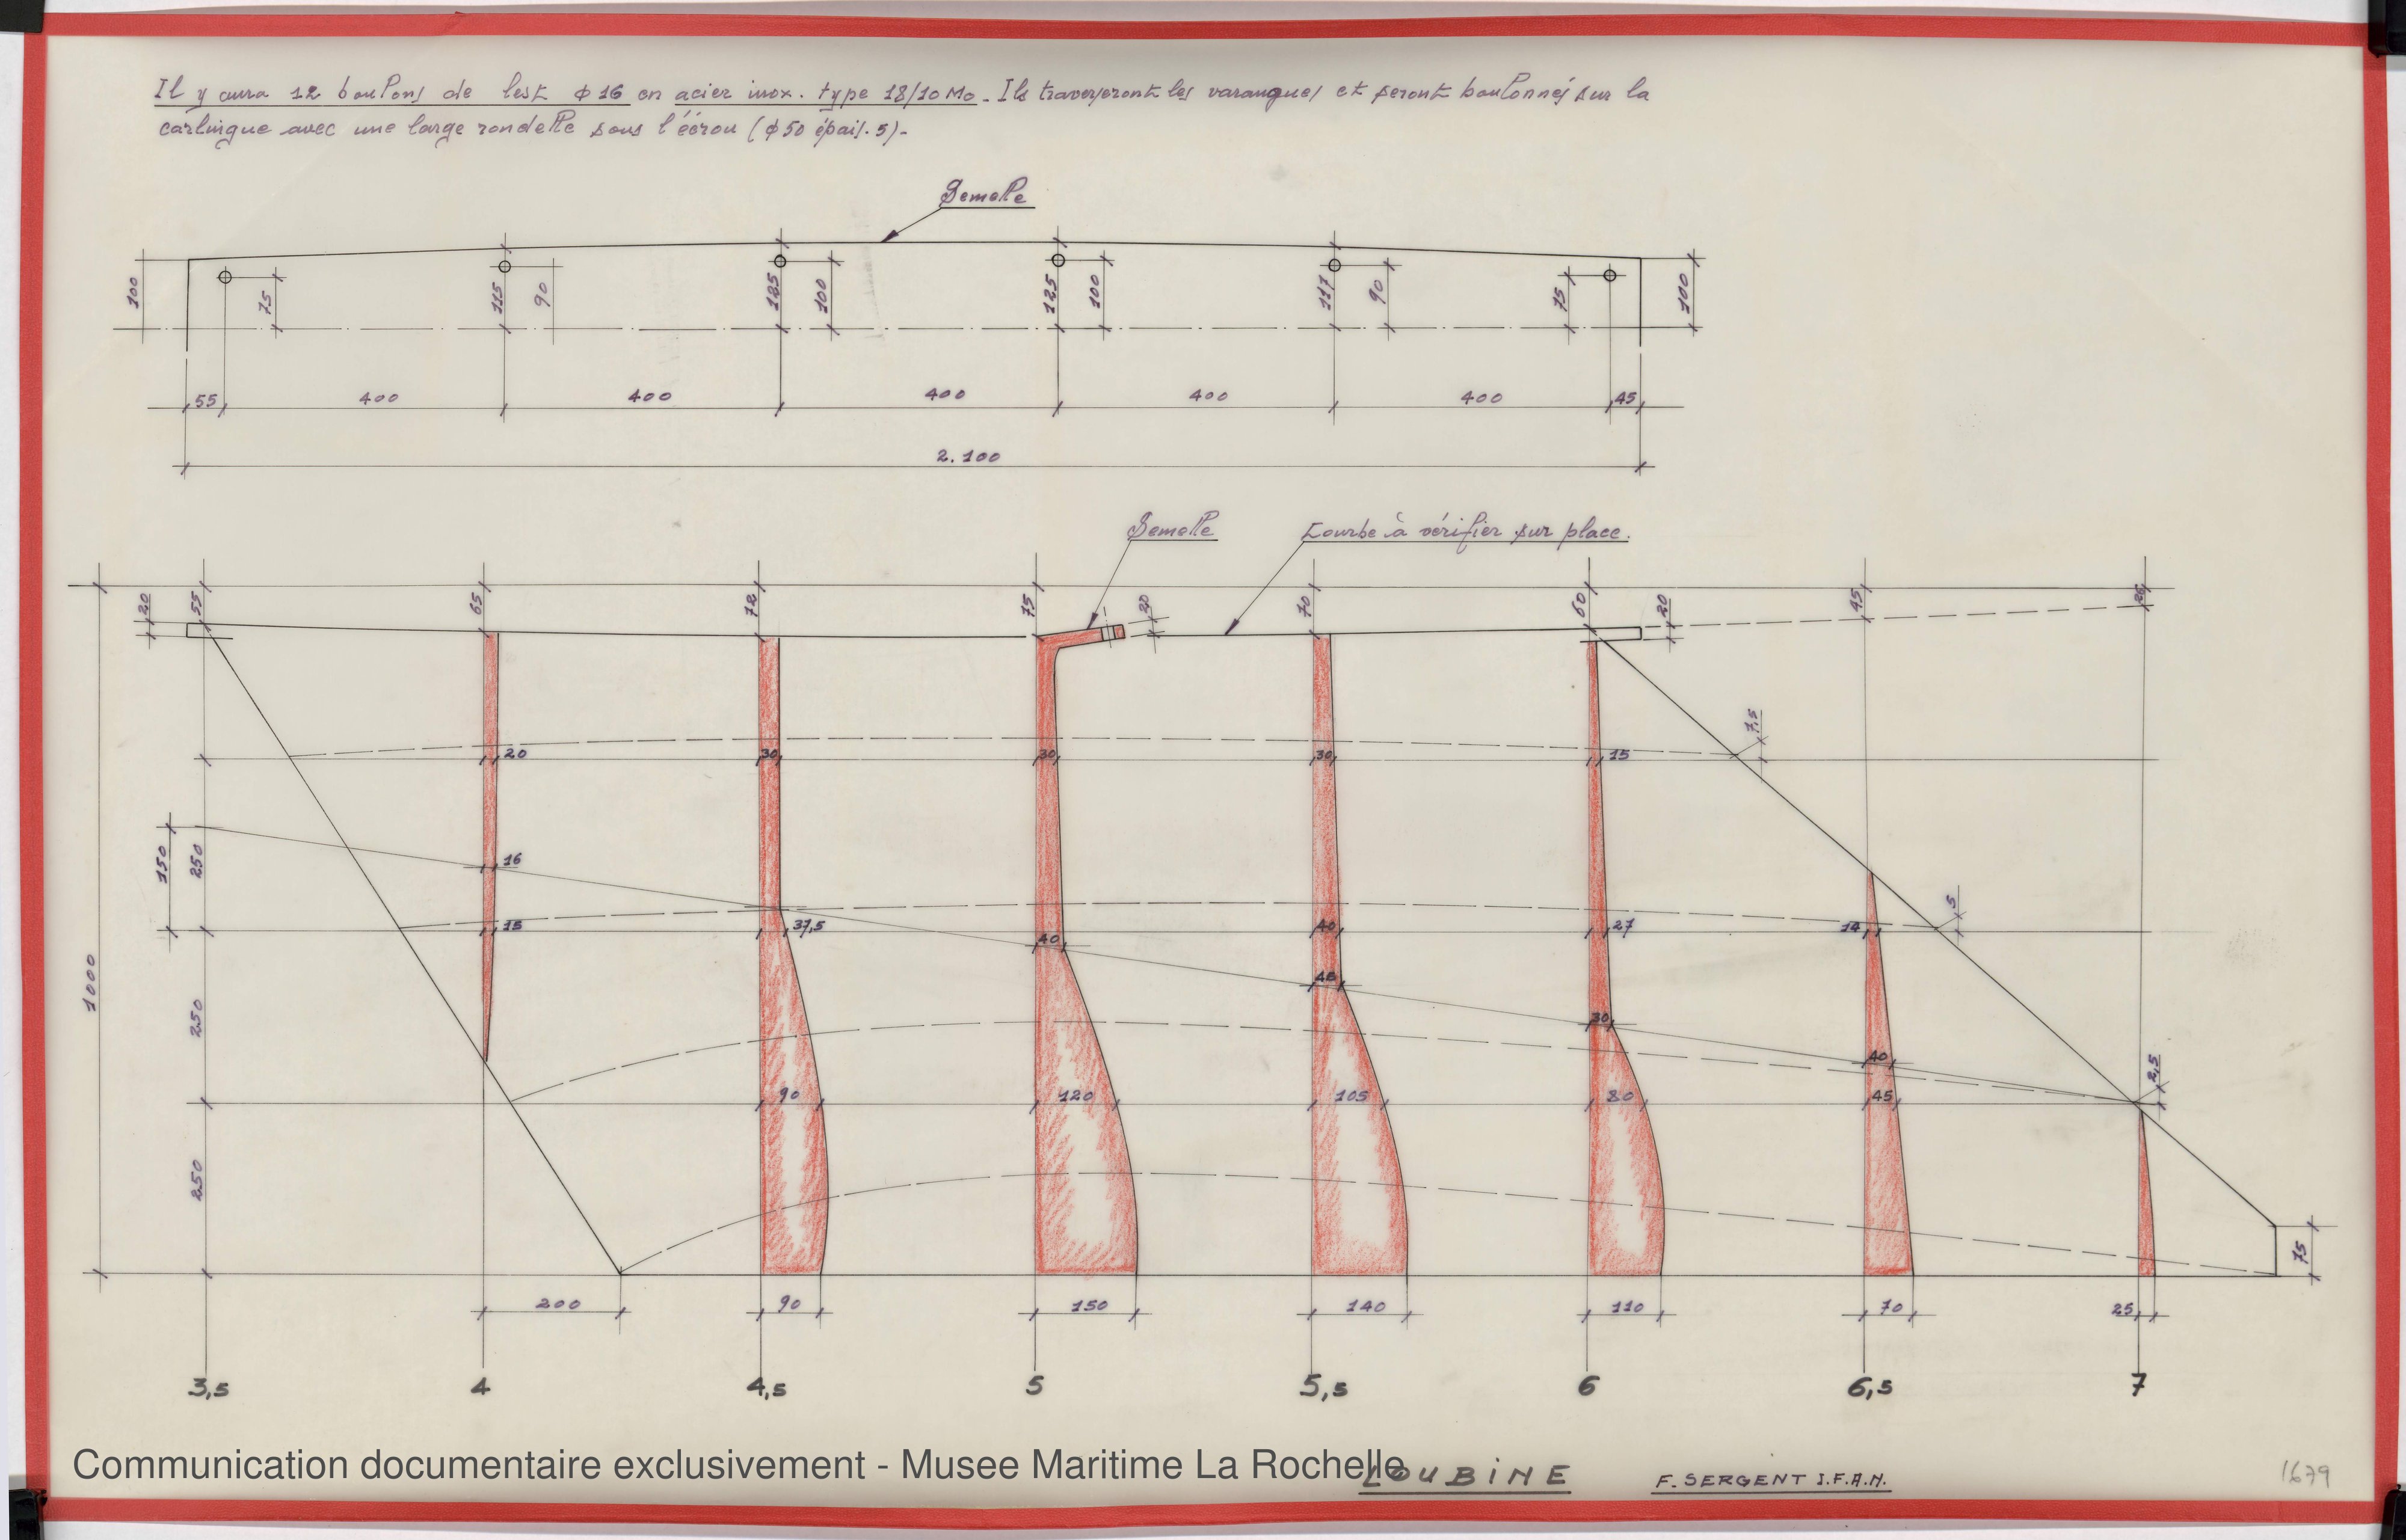 Il y aura 12 boulons de lest ϕ 16 en acier inox. type 18/10 Mo. Ils traverseront les varangues et seront boulonnés sur la
carlingue avec une large rondelle sous l'écrou (ϕ 50 épais. 5)-
Semelle
100 75 115 90 125 100 125 100 117 90 75 100
55 400 400 400 400 400 45
2.100
Semelle Courbe à vérifier sur place.
20 55 65 72 75 20 70 60 20 45 26
7,5
20 30 30 30 15
150 250 16
5
15 37,5 40 40 27 14
1000
48
250 30
40
2,5
90 120 105 80 45
250
75
200 90 150 140 110 70 25
3,5 4 4,5 5 5,5 6 6,5 7
Communication documentaire exclusivement - Musee Maritime La Rochelle
LOUBINE F. SERGENT I.F.A.N. 1679